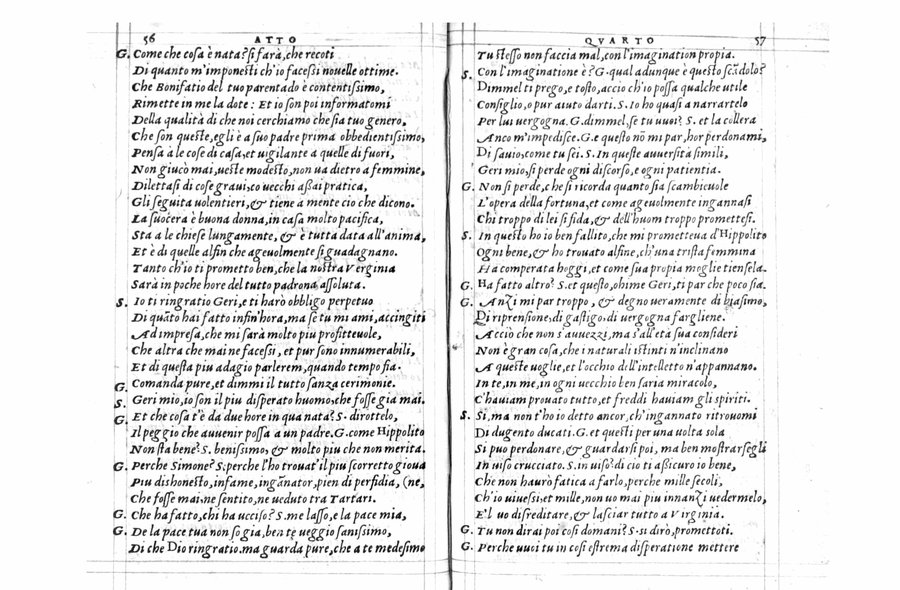 56 ATTO
G. Come che cosa è nata? si farà, che recoti
Di quanto m'imponesti ch'io facessi nouelle ottime.
Che Bonifatio del tuo parentado è contentissimo,
Rimette in me la dote: Et io son poi informatomi
Della qualità di che noi cerchiamo che sia tuo genero,
Che son queste, egli è a suo padre prima obbedientissimo,
Pensa à le cose di casa, et uigilante a quelle di fuori,
Non giucò mai, ueste modesto, non ua dietro a femmine,
Dilettasi di cose graui, co uecchi assai pratica,
Gli seguita uolentieri, & tiene a mente cio che dicono.
La suocera è buona donna, in casa molto pacifica,
Sta a le chiese lungamente, & è tutta data all'anima,
Et è di quelle alfin che ageuolmente si guadagnano.
Tanto ch'io ti prometto ben, che la nostra Verginia
Sarà in poche hore del tutto padrona assoluta.
S. Io ti ringratio Geri, et ti harò obbligo perpetuo
Di quãto hai fatto infin'hora, ma se tu mi ami, accingiti
Ad impresa, che mi sarà molto piu profitteuole,
Che altra che mai ne facessi, et pur sono innumerabili,
Et di questa piu adagio parlerem, quando tempo fia.
G. Comanda pure, et dimmi il tutto sanza cerimonie.
S. Geri mio, io son il piu disperato huomo, che fosse gia mai.
G. Et che cosa t'è da due hore in qua nata? S. dirottelo,
Il peggio che auuenir possa a un padre. G. come Hippolito
Non sta bene? S. benissimo, & molto piu che non merita.
G. Perche Simone? S. perche l'ho trouat'il piu scorretto gioua
Piu dishonesto, infame, ingãnator, pien di perfidia, (ne,
Che fosse mai, ne sentito, ne ueduto tra Tartari.
G. Che ha fatto, chi ha ucciso? S. me lasso, e la pace mia,
G. De la pace tua non so gia, ben te ueggio sanissimo,
Di che Dio ringratio. ma guarda pure, che a te medesimo
QVARTO 57
Tu stesso non faccia mal, con l'imagination propia.
S. Con l'imaginatione è? G. qual adunque è questo scãdolo?
Dimmel ti prego, e tosto, accio ch'io possa qualche utile
Consiglio, o pur aiuto darti. S. Io ho quasi a narrartelo
Per lui uergogna. G. dimmel, se tu uuoi? S. et la collera
Anco m'impedisce. G. e questo nõ mi par, hor perdonami,
Di sauio, come tu sei. S. In queste auuersità simili,
Geri mio, si perde ogni discorso, e ogni patientia.
G. Non si perde, che si ricorda quanto sia scambieuole
L'opera della fortuna, et come ageuolmente ingannasi
Chi troppo di lei si fida, & dell'huom troppo promettesi.
S. In questo ho io ben fallito, che mi prometteua d'Hippolito
Ogni bene, & ho trouato alfine, ch'una trista femmina
Ha comperata hoggi, et come sua propia moglie tiensela.
G. Ha fatto altro? S. et questo, ohime Geri, ti par che poco sia.
G. Anzi mi par troppo, & degno ueramente di biasimo,
Di riprensione, di gastigo, di uergogna fargliene.
Acciò che non s'auuezzi, ma s'all'età sua consideri
Non è gran cosa, che i naturali istinti n'inclinano
A queste uoglie, et l'occhio dell'intelletto n'appannano.
In te, in me, in ogni uecchio ben saria miracolo,
C'hauiam prouato tutto, et freddi hauiam gli spiriti.
S. Si, ma non t'ho io detto ancor, ch'ingannato ritrouomi
Di dugento ducati. G. et questi per una uolta sola
Si puo perdonare, & guardarsi poi, ma ben mostrarsegli
In uiso crucciato. S. in uiso? di cio ti assicuro io bene,
Che non hauro fatica a farlo, perche mille secoli,
Ch'io uiuessi, et mille, non uo mai piu innanzi uedermelo,
E'l uo disreditare, & lasciar tutto a Virginia.
G. Tu non dirai poi cosi domani? S. si dirò, promettoti.
G. Perche uuoi tu in cosi estrema disperatione mettere